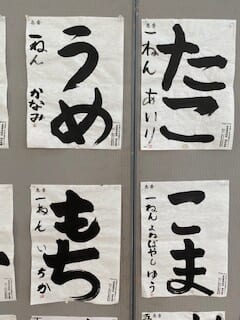 うめ
一ねん かなみ
たこ
一ねん あいり
もち
一ねん いちか
こま
一ねん よねばやし ゆう